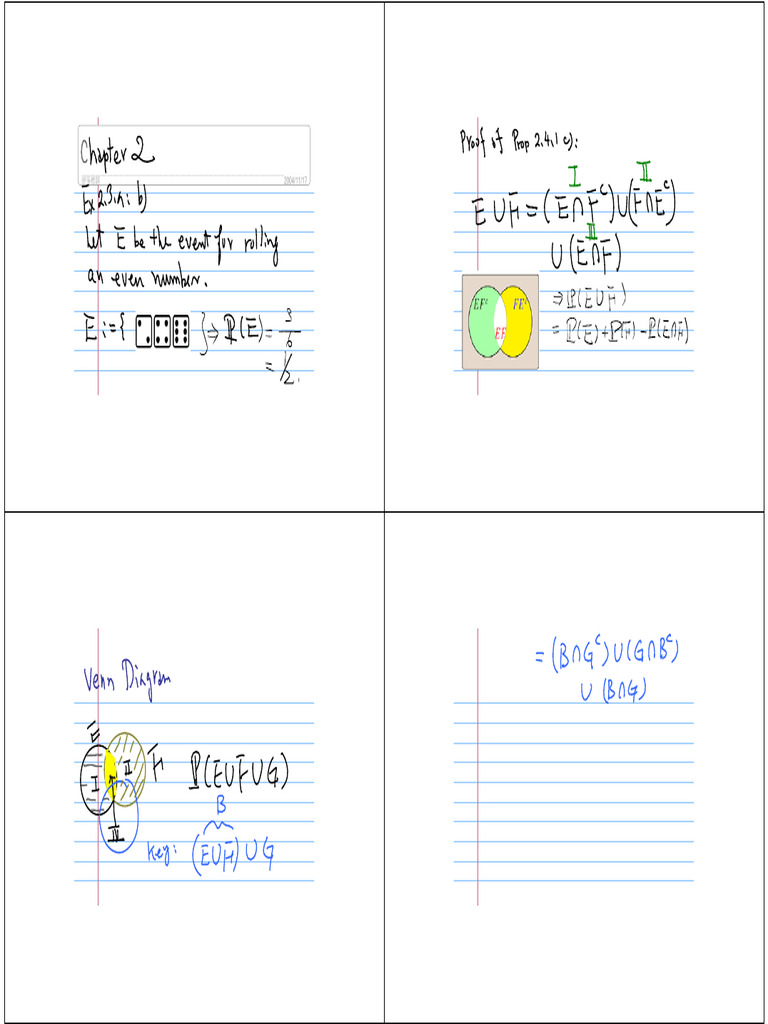 Chapter 2
2004/11/17
Ex 2.3.4: b)
Let E be the event for rolling
an even number.
E := { } ⇒ ℙ(E) = 3/6
= 1/2.
Proof of Prop 2.4.1 c):
I II
E ∪ F = (E ∩ F^c) ∪ (F ∩ E^c)
III
∪ (E ∩ F)
EF^c FE^c
EF
⇒ ℙ(E ∪ F)
= ℙ(E) + ℙ(F) - ℙ(E ∩ F)
Venn Diagram
E
I II F ℙ(E ∪ F ∪ G)
B
III
Key: (E ∪ F) ∪ G
= (B ∩ G^c) ∪ (G ∩ B^c)
∪ (B ∩ G)